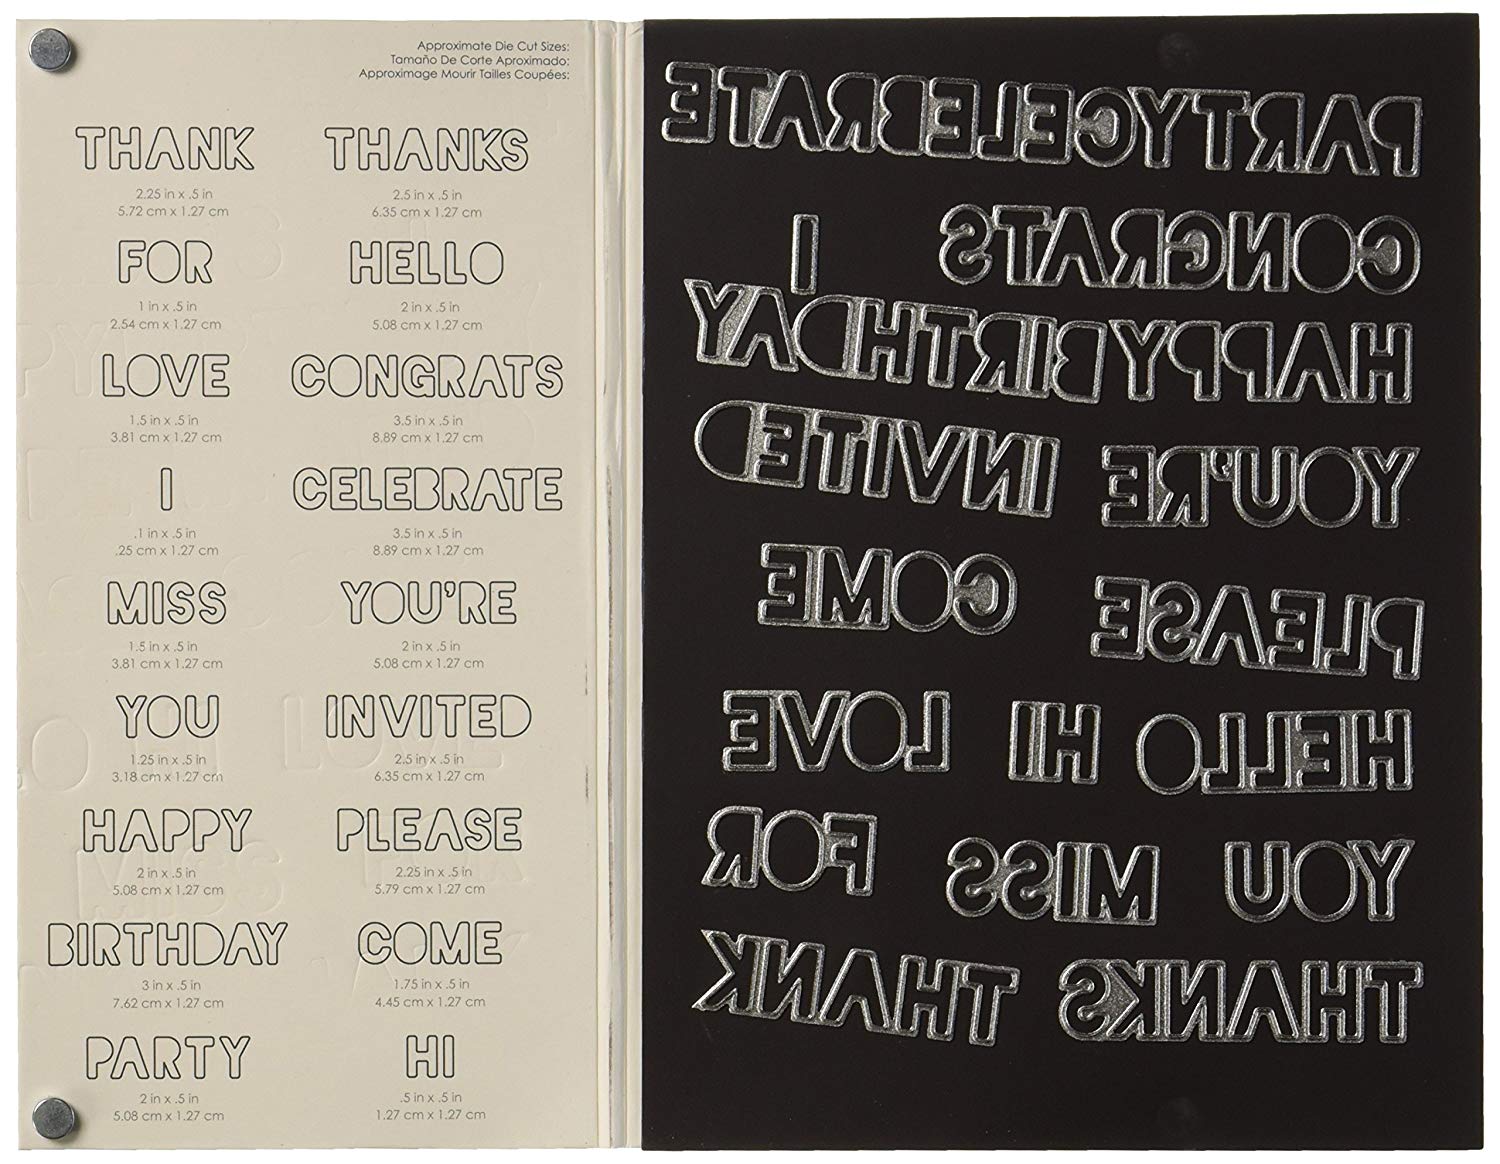 Approximate Die Cut Sizes:
Tamaño De Corte Aproximado:
Approximage Mourir Tailles Coupées:
THANK
2.25 in x .5 in
5.72 cm x 1.27 cm
THANKS
2.5 in x .5 in
6.35 cm x 1.27 cm
FOR
1 in x .5 in
2.54 cm x 1.27 cm
HELLO
2 in x .5 in
5.08 cm x 1.27 cm
LOVE
1.5 in x .5 in
3.81 cm x 1.27 cm
CONGRATS
3.5 in x .5 in
8.89 cm x 1.27 cm
I
.1 in x .5 in
.25 cm x 1.27 cm
CELEBRATE
3.5 in x .5 in
8.89 cm x 1.27 cm
MISS
1.5 in x .5 in
3.81 cm x 1.27 cm
YOU'RE
2 in x .5 in
5.08 cm x 1.27 cm
YOU
1.25 in x .5 in
3.18 cm x 1.27 cm
INVITED
2.5 in x .5 in
6.35 cm x 1.27 cm
HAPPY
2 in x .5 in
5.08 cm x 1.27 cm
PLEASE
2.25 in x .5 in
5.79 cm x 1.27 cm
BIRTHDAY
3 in x .5 in
7.62 cm x 1.27 cm
COME
1.75 in x .5 in
4.45 cm x 1.27 cm
PARTY
2 in x .5 in
5.08 cm x 1.27 cm
HI
.5 in x .5 in
1.27 cm x 1.27 cm
PARTY CELEBRATE
CONGRATS I
HAPPY BIRTHDAY
YOU'RE INVITED
PLEASE COME
HELLO HI LOVE
YOU MISS FOR
THANKS THANK